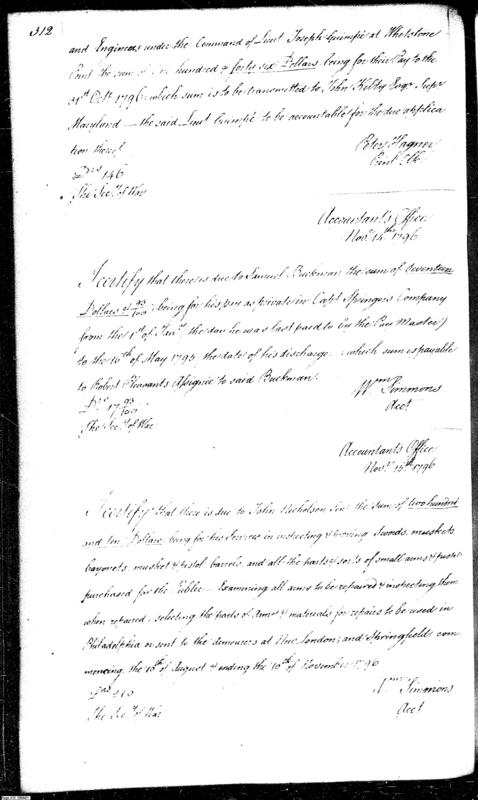 312
and Engineers under the Command of Lieut Joseph Guimpé at Whetstone
Point the sum of One hundred & forty six Dollars being for their Pay to the
31st Octr 1796. which sum is to be transmitted to John Kilty Esqr Supr
Maryland — the said Lieut Guimpé to be accountable for the due applica
tion thereof
Peter Hagner
Prinl Clk
Drs 146
The Secy of War
Accountants Office
Novr 14th 1796
I certify that there is due to Samuel Buckman the sum of Seventeen
Dollars & 93/100 being for his pay as private in Capt Springers Company
from the 1st of Jany (the day he was last paid to by the Pay Master)
to the 16th of May 1795 the date of his discharge — which sum is payable
to Robert Assignee to said Buckman.
Wm Simmons
Acct
Drs 17 93/100
The Secy of War
Accountants Office
Novr 15th 1796
I certify that there is due to John Nicholson Senr the sum of two hundred
and ten Dollars being for his Services in inspecting & proving Swords, muskets
bayonets, musket & pistol barrels, and all the parts & sorts of small arms &
purchased for the Public — Examining all arms to be repaired & inspecting them
when repaired, selecting the parts of Arms & materials for repairs to be used in
Philadelphia or sent to the Armourers at New London, and Springfield, com
mencing the 10th of August & ending the 10th of November 1796
Wm Simmons
Acct
210
The Secy of War